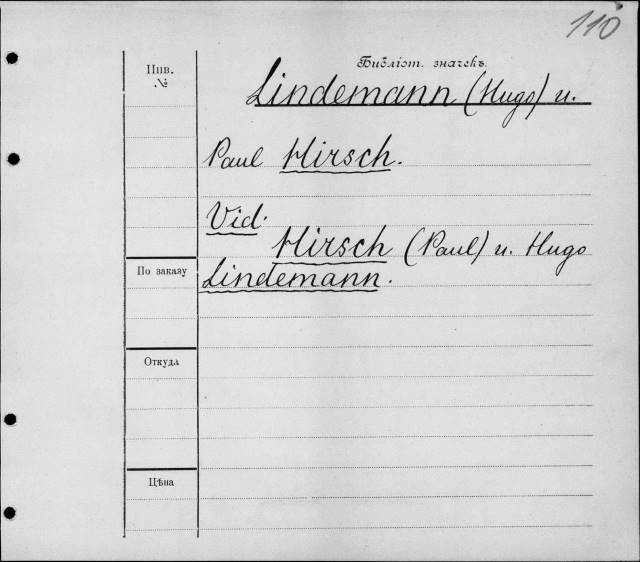 110
Библіот. значекъ.
Инв.
№
Lindemann (Hugo) u.
Paul Hirsch.
Vid.
Hirsch (Paul) u. Hugo
По заказу
Lindemann.
Откуда
Цѣна